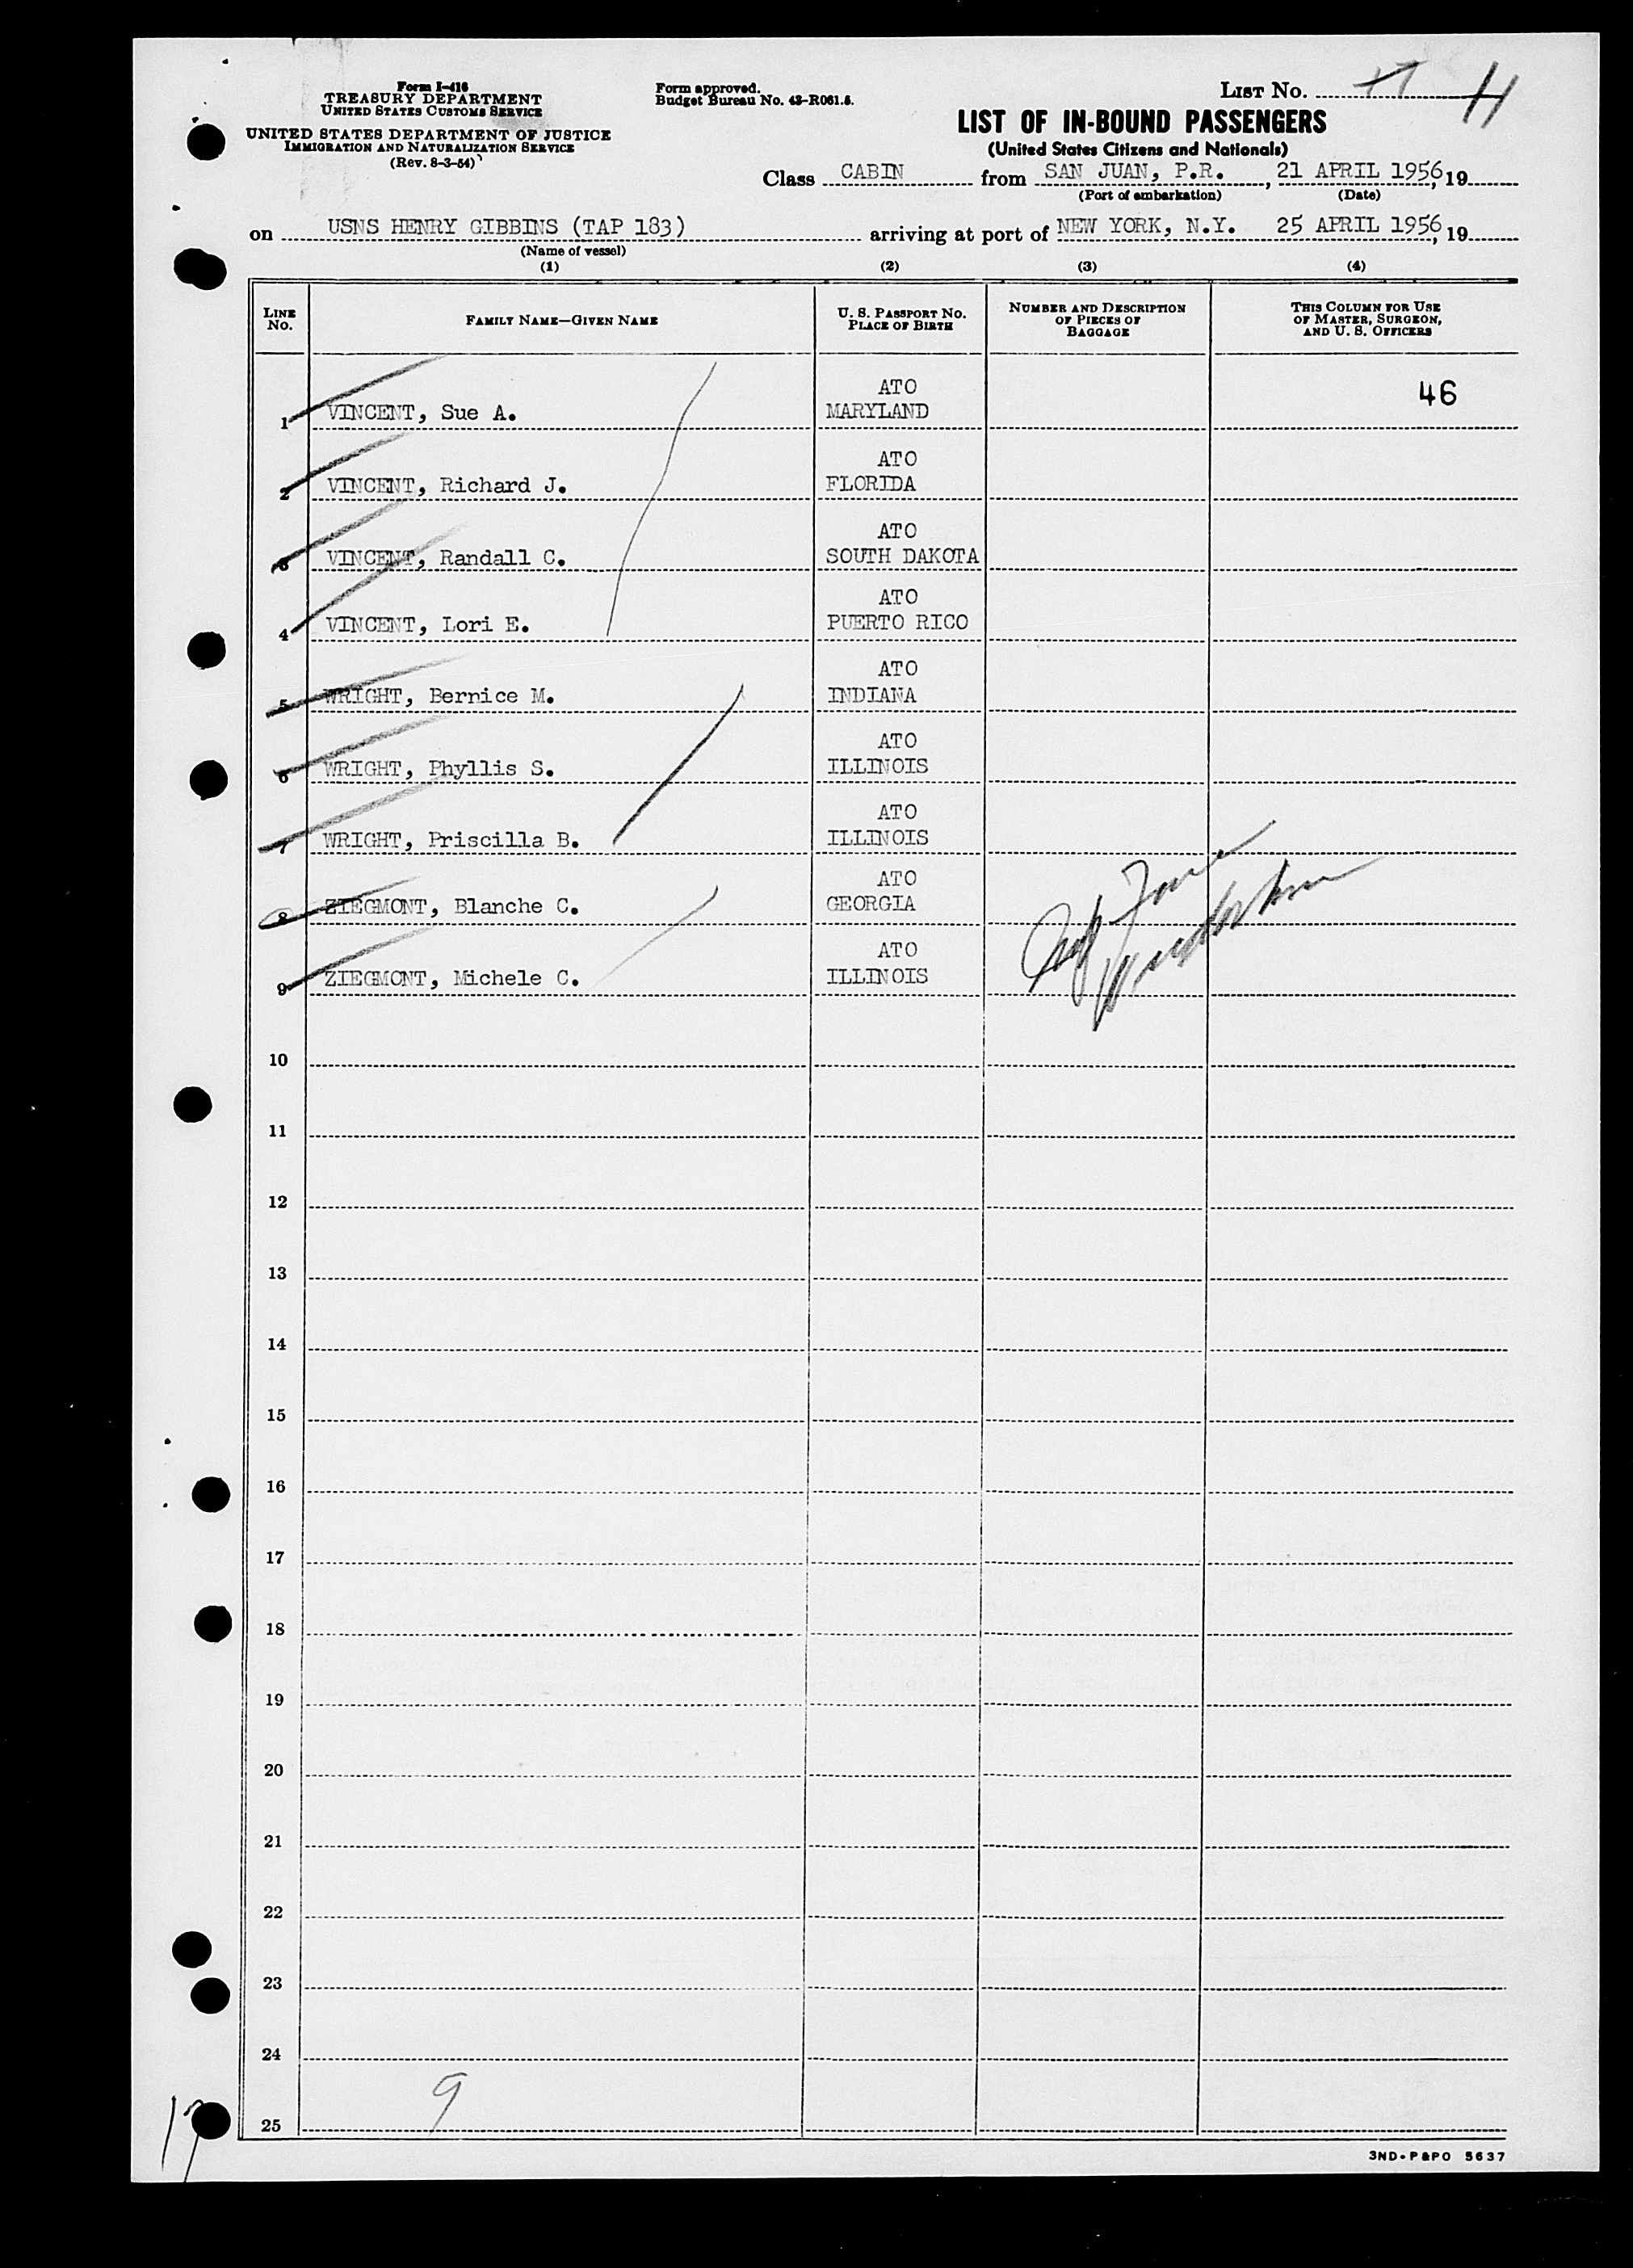 Form I-416
TREASURY DEPARTMENT
UNITED STATES CUSTOMS SERVICE
UNITED STATES DEPARTMENT OF JUSTICE
IMMIGRATION AND NATURALIZATION SERVICE
(Rev. 8-3-54)
Form approved.
Budget Bureau No. 43-R061.5.
LIST NO. 17 H
LIST OF IN-BOUND PASSENGERS
(United States Citizens and Nationals)
Class CABIN from SAN JUAN, P.R., 21 APRIL 1956, 19
(Port of embarkation) (Date)
on USNS HENRY GIBBINS (TAP 183) arriving at port of NEW YORK, N.Y. 25 APRIL 1956, 19
(Name of vessel)
(1) (2) (3) (4)
LINE NO. FAMILY NAME—GIVEN NAME U. S. PASSPORT NO. PLACE OF BIRTH NUMBER AND DESCRIPTION OF PIECES OF BAGGAGE THIS COLUMN FOR USE OF MASTER, SURGEON, AND U. S. OFFICERS
ATO 46
1 VINCENT, Sue A. MARYLAND
ATO
2 VINCENT, Richard J. FLORIDA
ATO
3 VINCENT, Randall C. SOUTH DAKOTA
ATO
4 VINCENT, Lori E. PUERTO RICO
ATO
5 WRIGHT, Bernice M. INDIANA
ATO
6 WRIGHT, Phyllis S. ILLINOIS
ATO
7 WRIGHT, Priscilla B. ILLINOIS
ATO
8 ZIEGMONT, Blanche C. GEORGIA
ATO
9 ZIEGMONT, Michele C. ILLINOIS
10
11
12
13
14
15
16
17
18
19
20
21
22
23
24
9
25
17
3ND-P&PO 5637